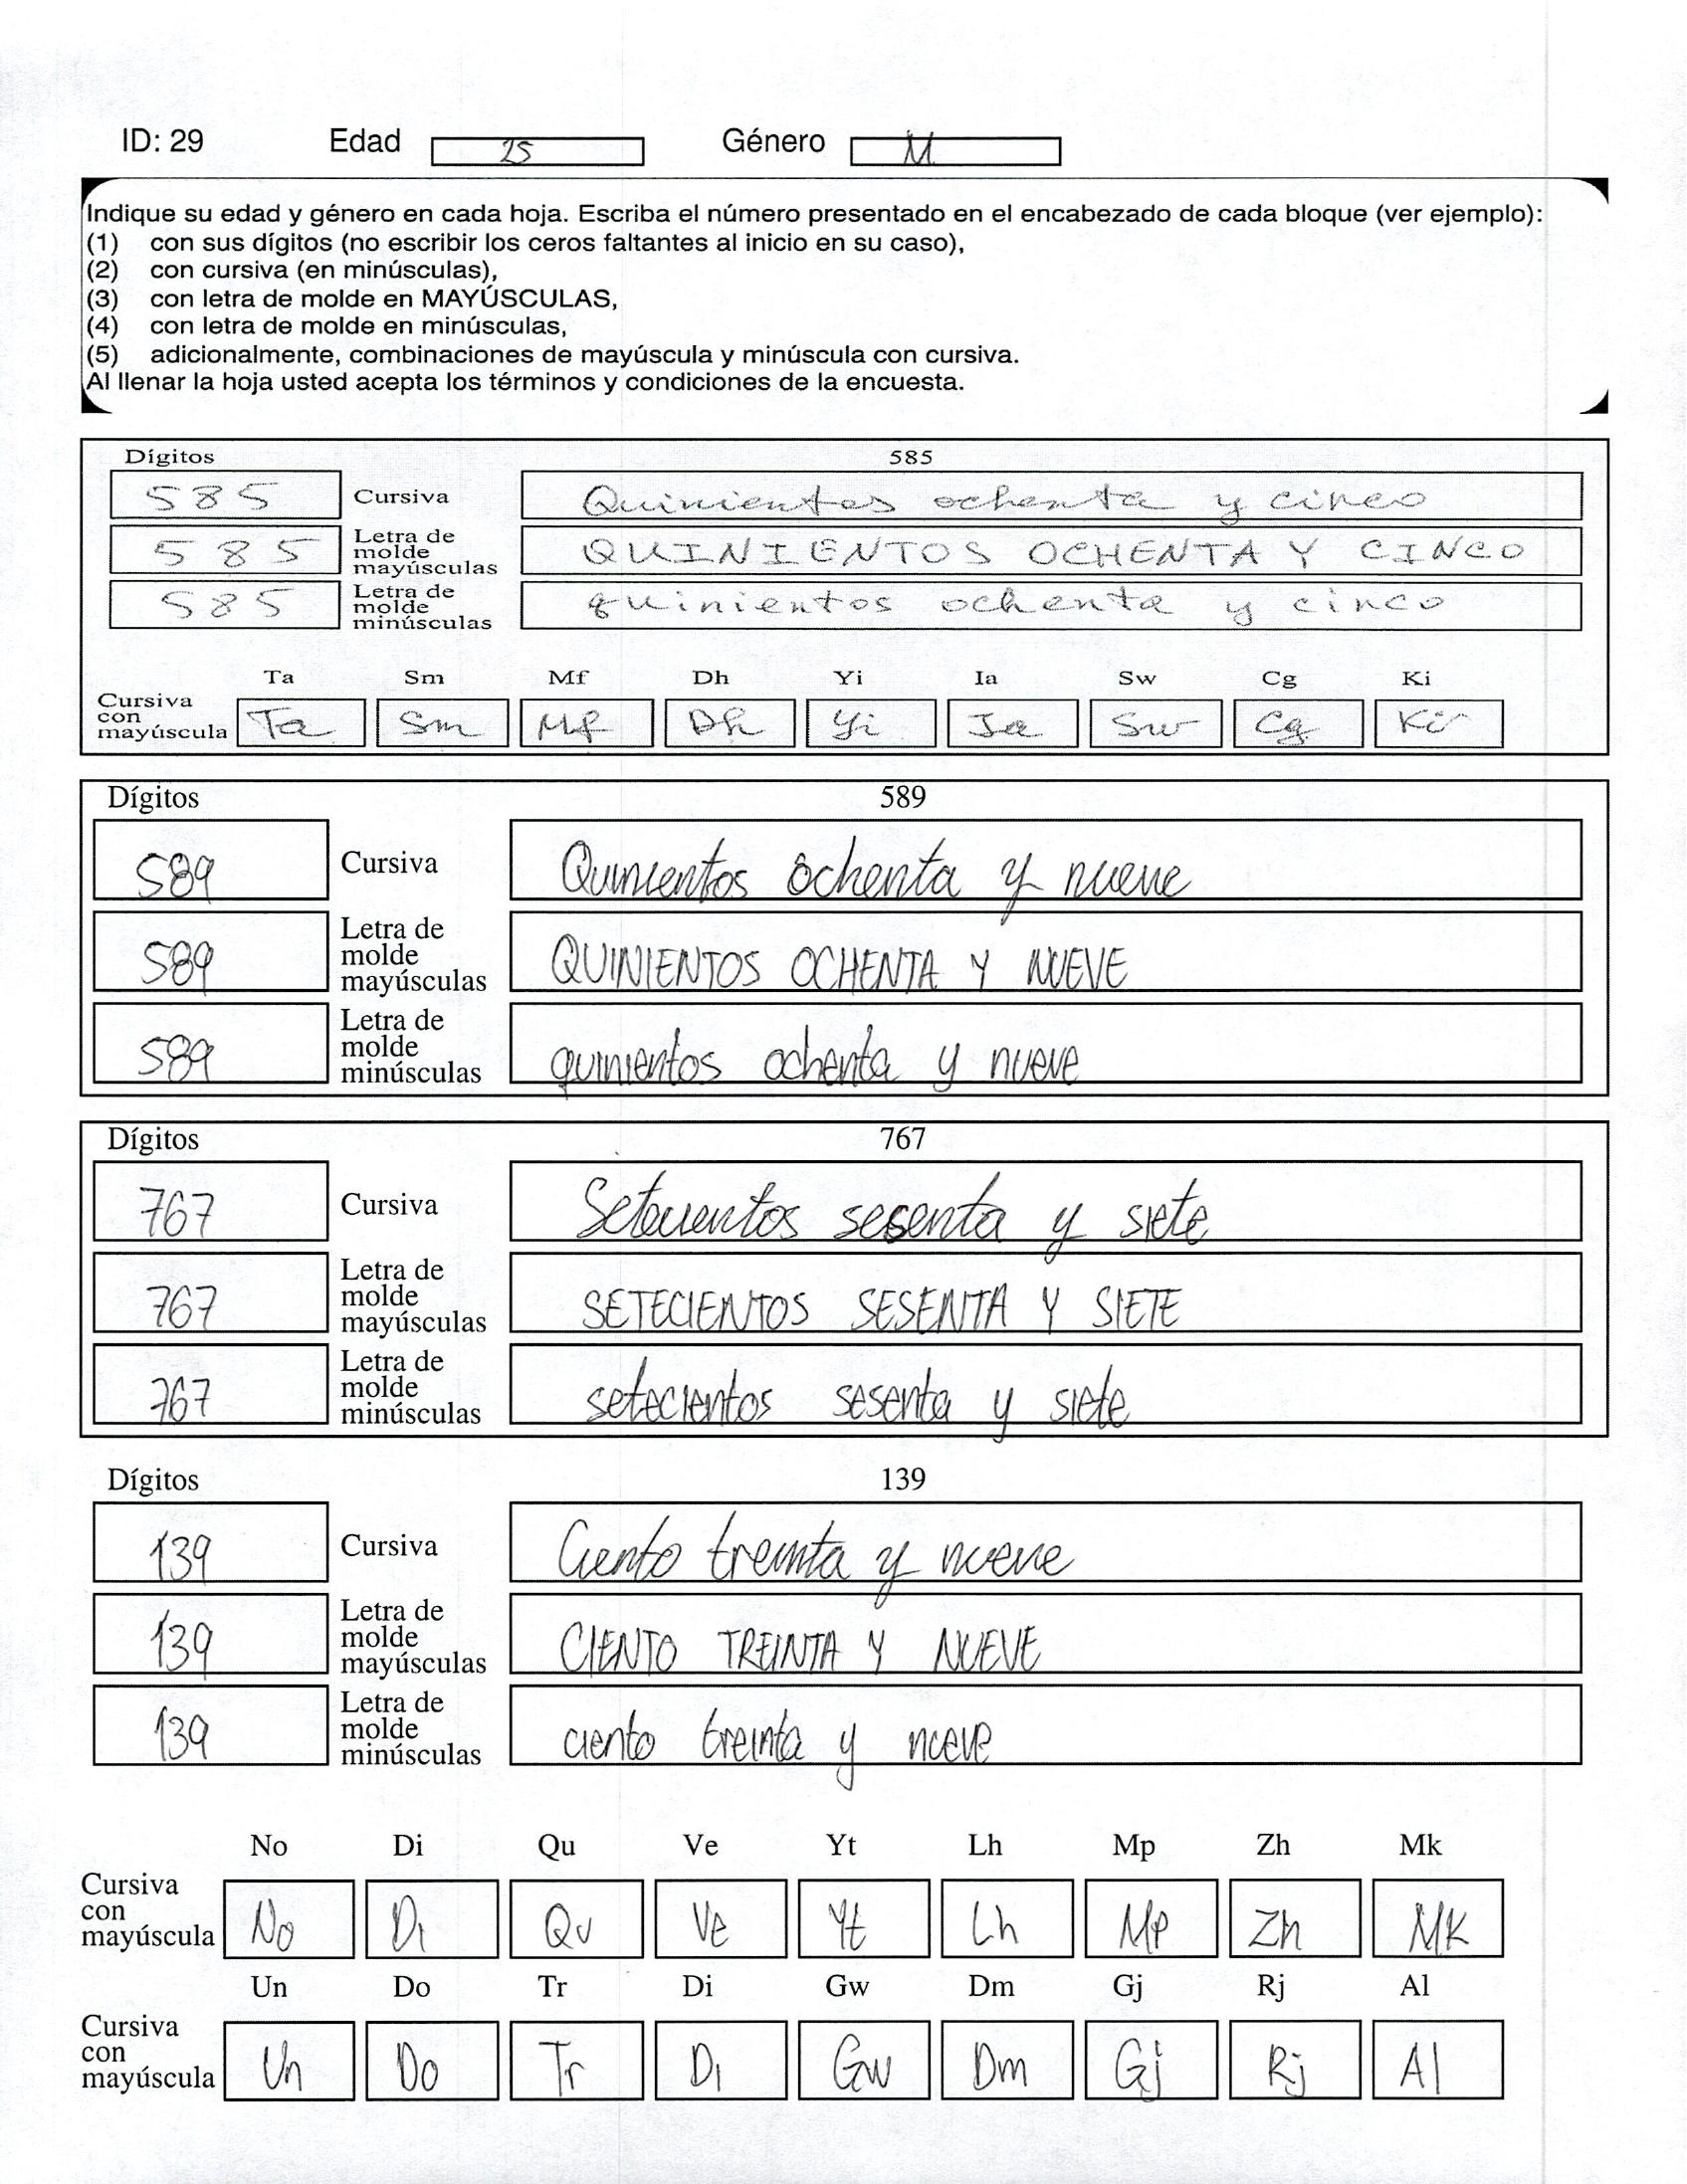 ID: 29 Edad 25 Género M
Indique su edad y género en cada hoja. Escriba el número presentado en el encabezado de cada bloque (ver ejemplo):
(1) con sus dígitos (no escribir los ceros faltantes al inicio en su caso),
(2) con cursiva (en minúsculas),
(3) con letra de molde en MAYÚSCULAS,
(4) con letra de molde en minúsculas,
(5) adicionalmente, combinaciones de mayúscula y minúscula con cursiva.
Al llenar la hoja usted acepta los términos y condiciones de la encuesta.
Dígitos 585
585 Cursiva Quinientos ochenta y cinco
585 Letra de molde mayúsculas QUINIENTOS OCHENTA Y CINCO
585 Letra de molde minúsculas quinientos ochenta y cinco
Ta Sm Mf Dh Yi Ia Sw Cg Ki
Cursiva con mayúscula Ta Sm Mf Dh Yi Ia Sw Cg Ki
Dígitos 589
589 Cursiva Quinientos ochenta y nueve
589 Letra de molde mayúsculas QUINIENTOS OCHENTA Y NUEVE
589 Letra de molde minúsculas quinientos ochenta y nueve
Dígitos 767
767 Cursiva Setecientos sesenta y siete
767 Letra de molde mayúsculas SETECIENTOS SESENTA Y SIETE
767 Letra de molde minúsculas setecientos sesenta y siete
Dígitos 139
139 Cursiva Ciento treinta y nueve
139 Letra de molde mayúsculas CIENTO TREINTA Y NUEVE
139 Letra de molde minúsculas ciento treinta y nueve
No Di Qu Ve Yt Lh Mp Zh Mk
Cursiva con mayúscula No Di Qu Ve Yt Lh Mp Zh Mk
Un Do Tr Di Gw Dm Gj Rj Al
Cursiva con mayúscula Un Do Tr Di Gw Dm Gj Rj Al